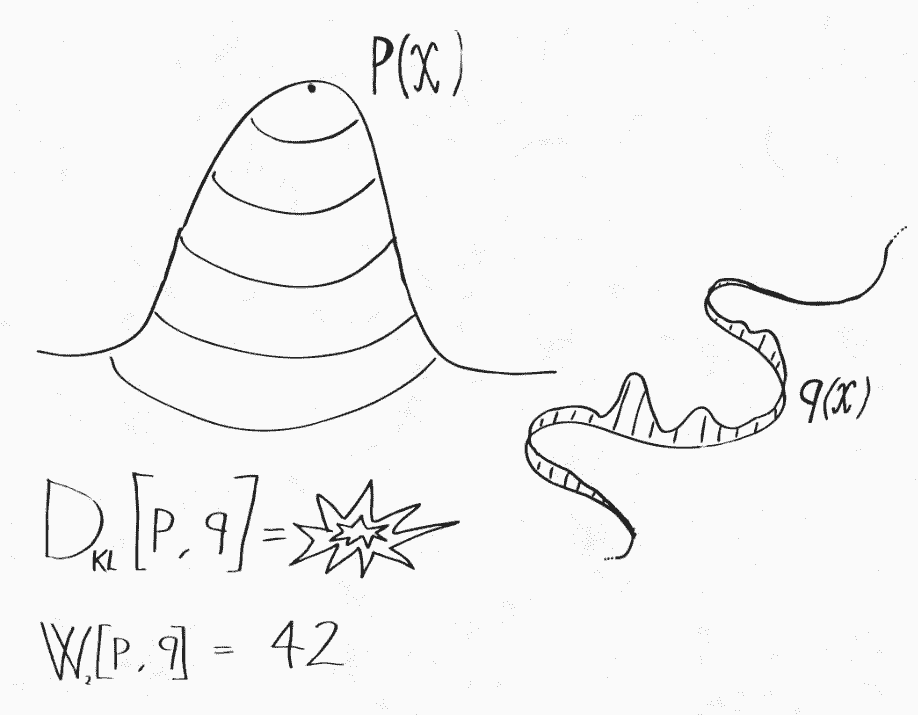 P(x)
q(x)
D_KL [P, q] =
W_2[P, q] = 42